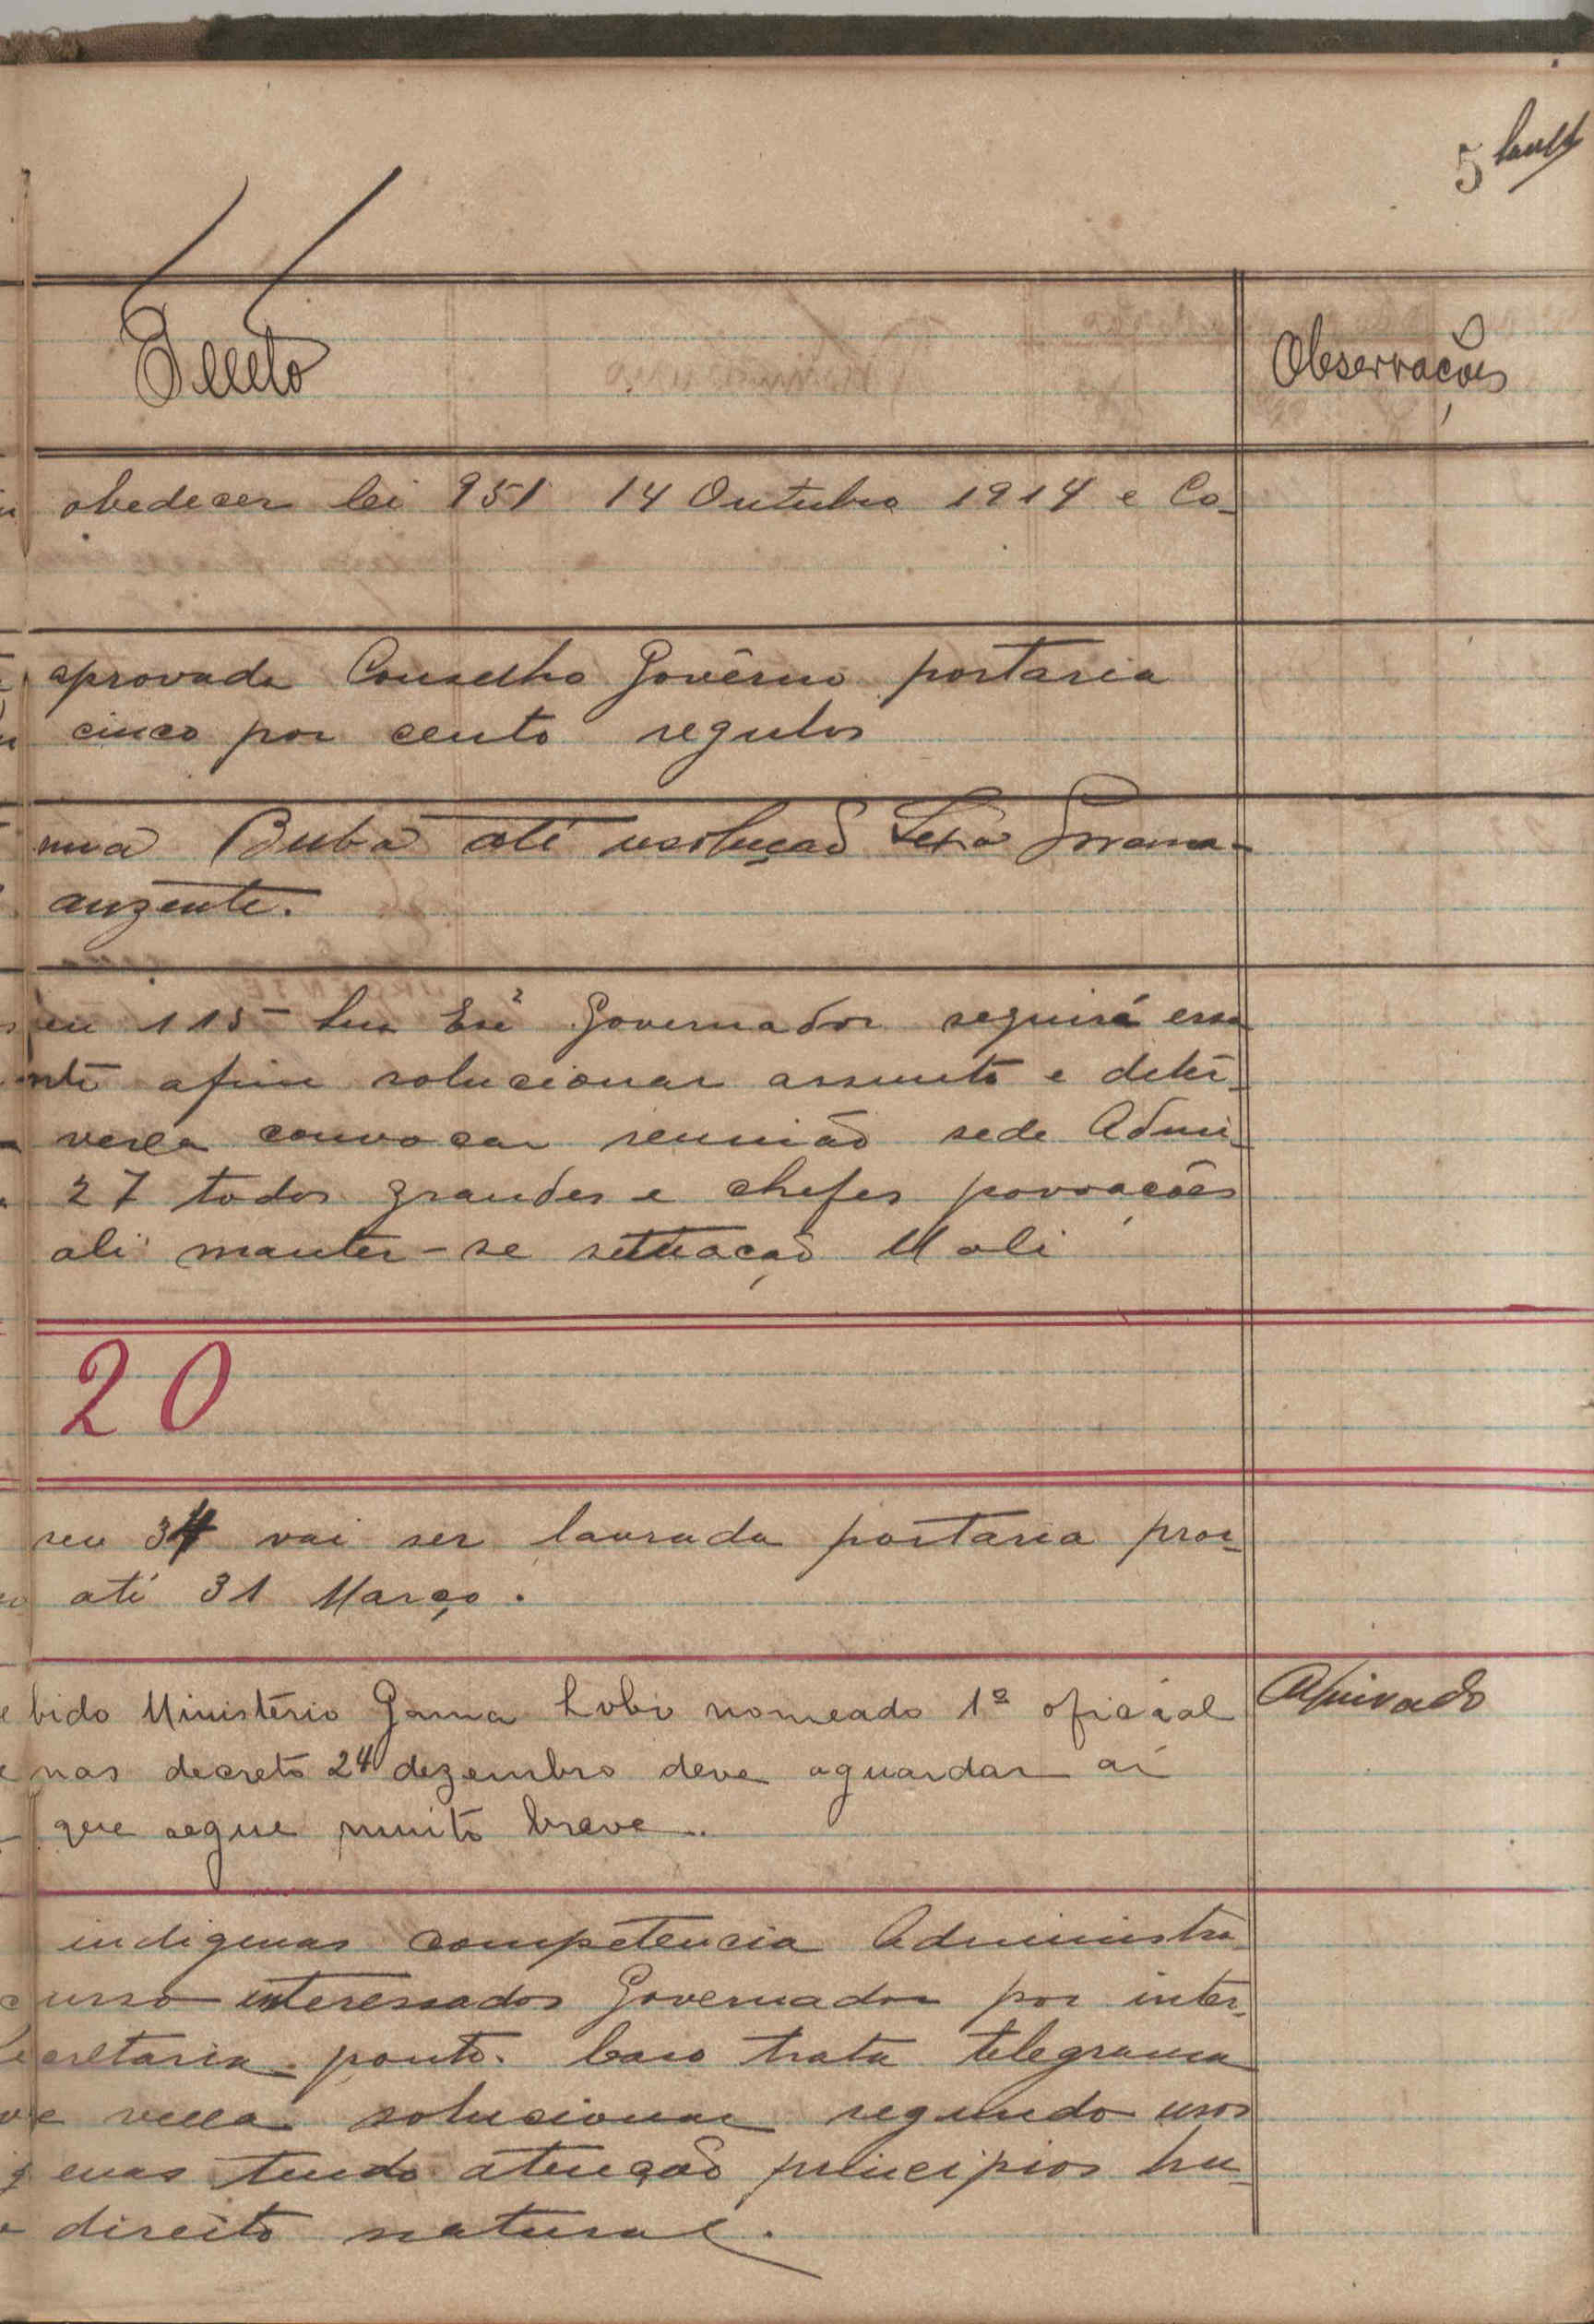 5
Observações
obedecer lei 951 14 Outubro 1914 e Co-
aprovada Conselho Govêrno portaria
cinco por cento regulos
Buba até resolução
auzente.
seu 115 Sua Exª Governador seguirá essa
afim solucionar assunto e deter-
convocar reunião sede Admi-
27 todos grandes e chefes povoações
ali manter-se situação Mali
20
seu 34 vai ser lavrada portaria pror-
até 31 Março.
bido Ministério Gama Lobo nomeado 1º oficial
Arquivado
nas decreto 24 dezembro deve aguardar aí
que segue muito breve.
indigenas competencia Administra-
curso interessados Governador por inter-
Secretaria ponto. Caso trata telegrama
solucionar segundo usos
genas tendo atenção principios hu-
direito natural.